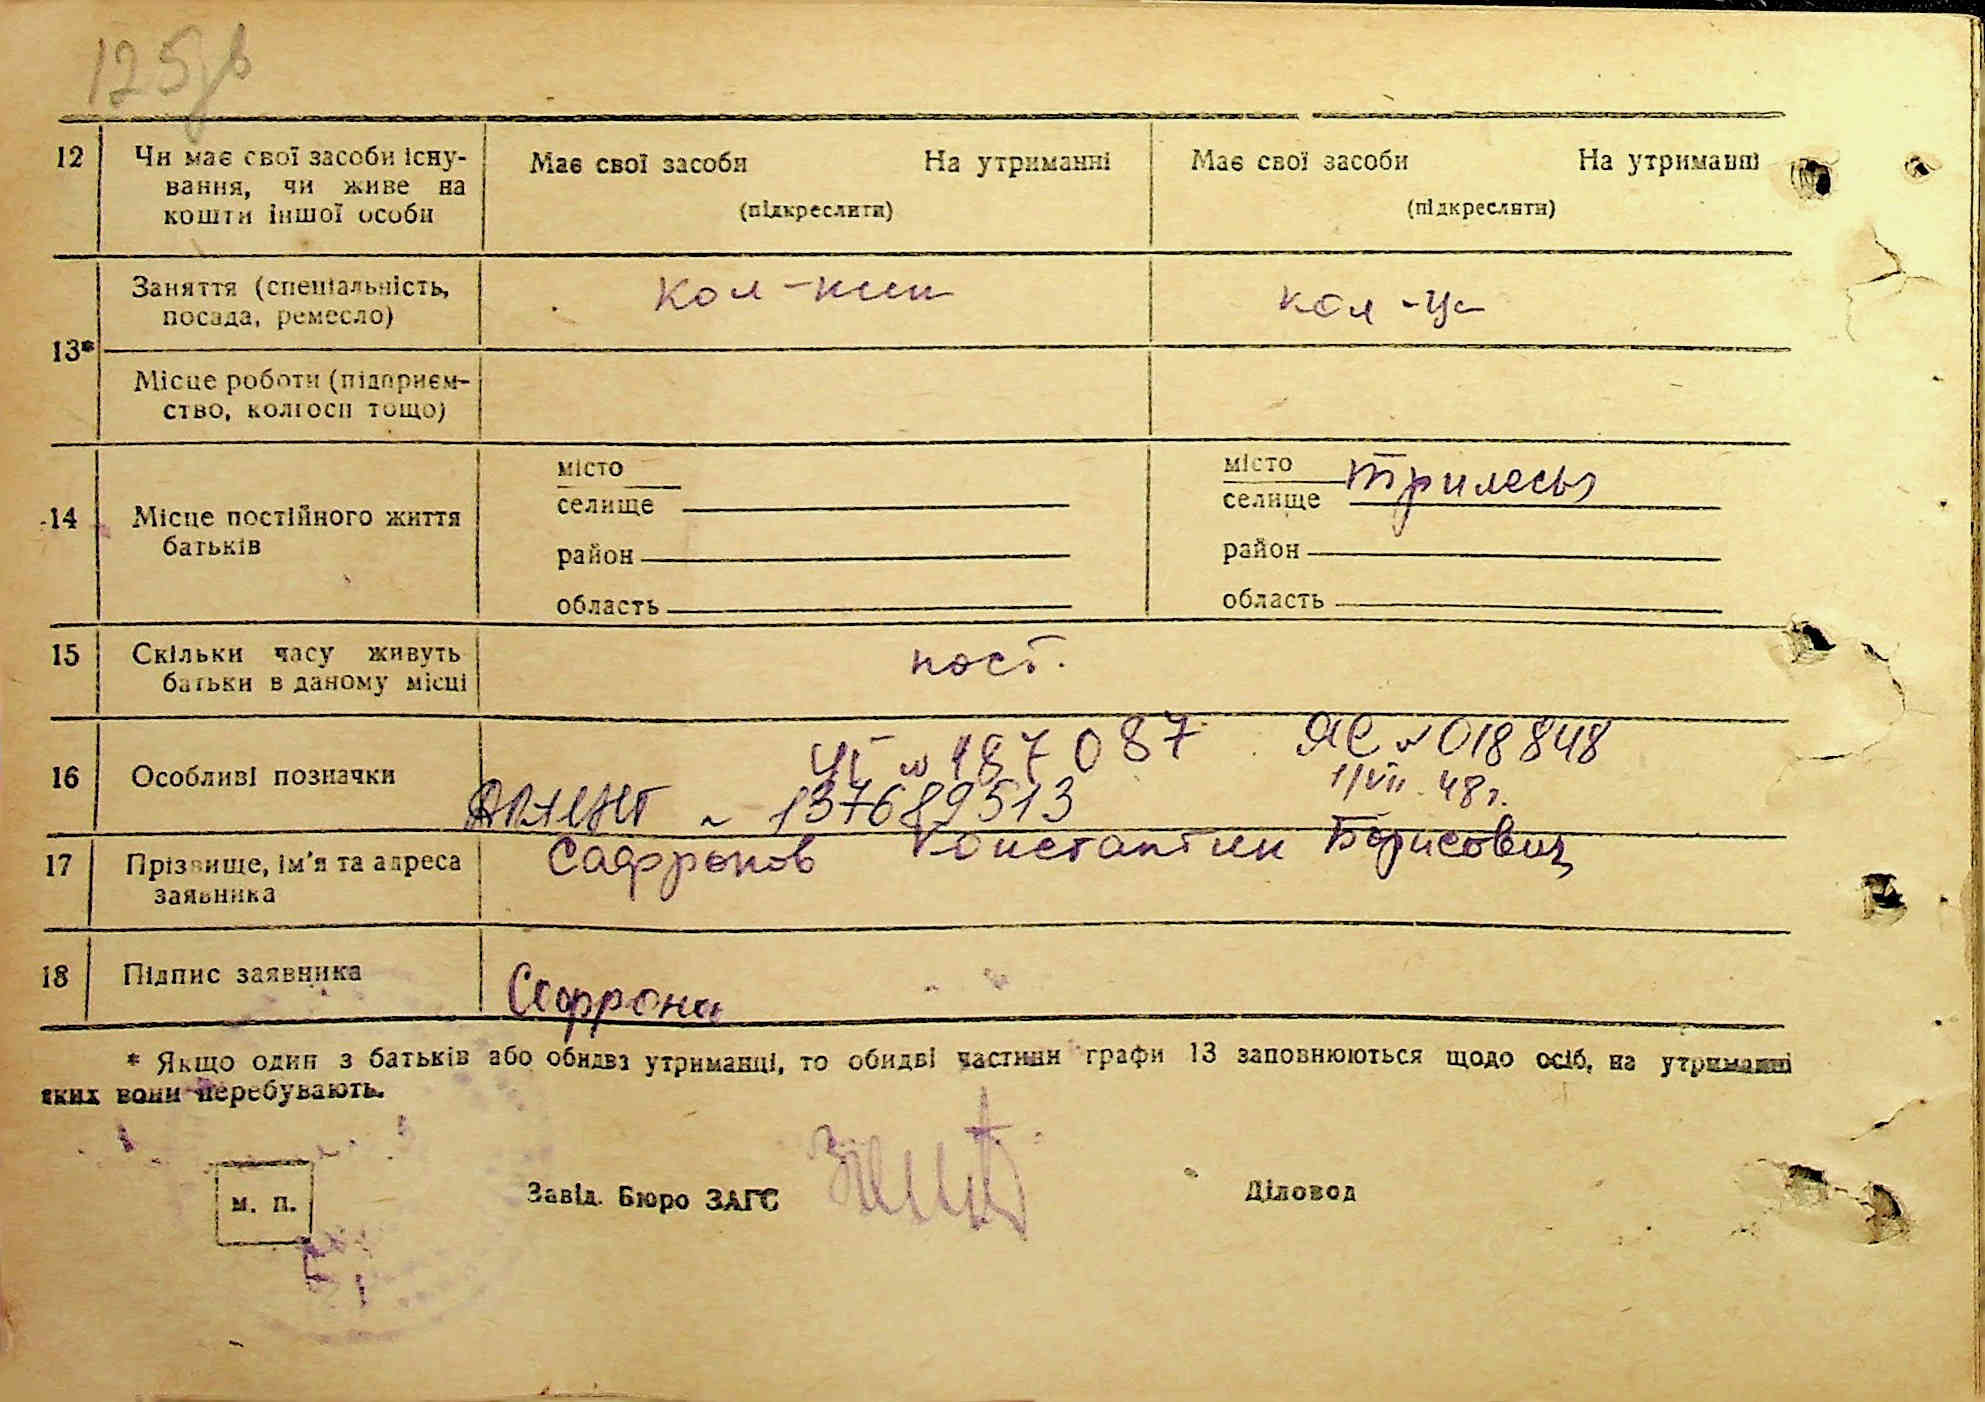 125
12 Чи має свої засоби існу-
вання, чи живе на
кошти іншої особи
Має свої засоби На утриманні
(підкреслити)
Має свої засоби На утриманні
(підкреслити)
13*
Заняття (спеціальність,
посада, ремесло)
кол-ник
кол-ця
Місце роботи (підприєм-
ство, колгосп тощо)
14 Місце постійного життя
батьків
місто
селище
район
область
місто
селище Трилесы
район
область
15 Скільки часу живуть
батьки в даному місці
пост.
16 Особливі позначки
№ 187087 ЯС № 018848
11/VII 48 г.
137689513
17 Прізвище, ім'я та адреса
заявника
Сафронов Константин Борисович
18 Підпис заявника
Сафрона
* Якщо один з батьків або обидва утриманці, то обидві частини графи 13 заповнюються щодо осіб, на утриманні
яких вони перебувають.
м. п.
Завід. Бюро ЗАГС
Діловод